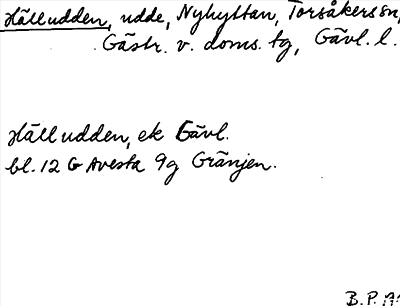 Hälludden, udde, Nyhyttan, Torsåkers sn,
Gästr. v. doms. tg, Gävl. l.
Hälludden, ek Gävl.
bl. 12 G Avesta 9g Gränjen.
B.P.